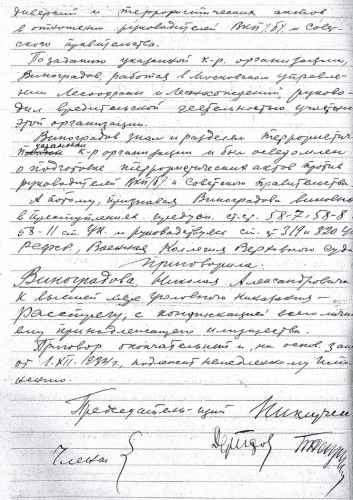 диверсий и террористических актов
в отношении руководителей ВКП/б/ и Сове-
тского правительства.
По заданию указанной к-р. организации,
Виноградов, работая в Московском управле-
нии Лесоохраны и Лесонасаждений, руково-
дил вредительской деятельностью участн
этой организации.
Виноградов знал и разделял террористич.
установки к-р организации и был осведомлен
о подготовке террористических актов против
руководителей ВКП/б/ и Советского правительства
А потому, признавая Виноградова виновны
в преступлениях предусм. ст. ст. 58-7, 58-8
58-11 ст. УК. и руководствуясь ст. ст 319 и 320 У
РСФСР, Военная Коллегия Верховного Суда
Приговорила:
Виноградова, Николая Александровича
к высшей мере уголовного наказания –
расстрелу, с конфискацией всего лично
ему принадлежащего имущества.
Приговор окончательный и, на основ. зак
от 1.XII.1934г., подлежит немедленному испо
нению.
Председатель-щий Никитчен
Члены